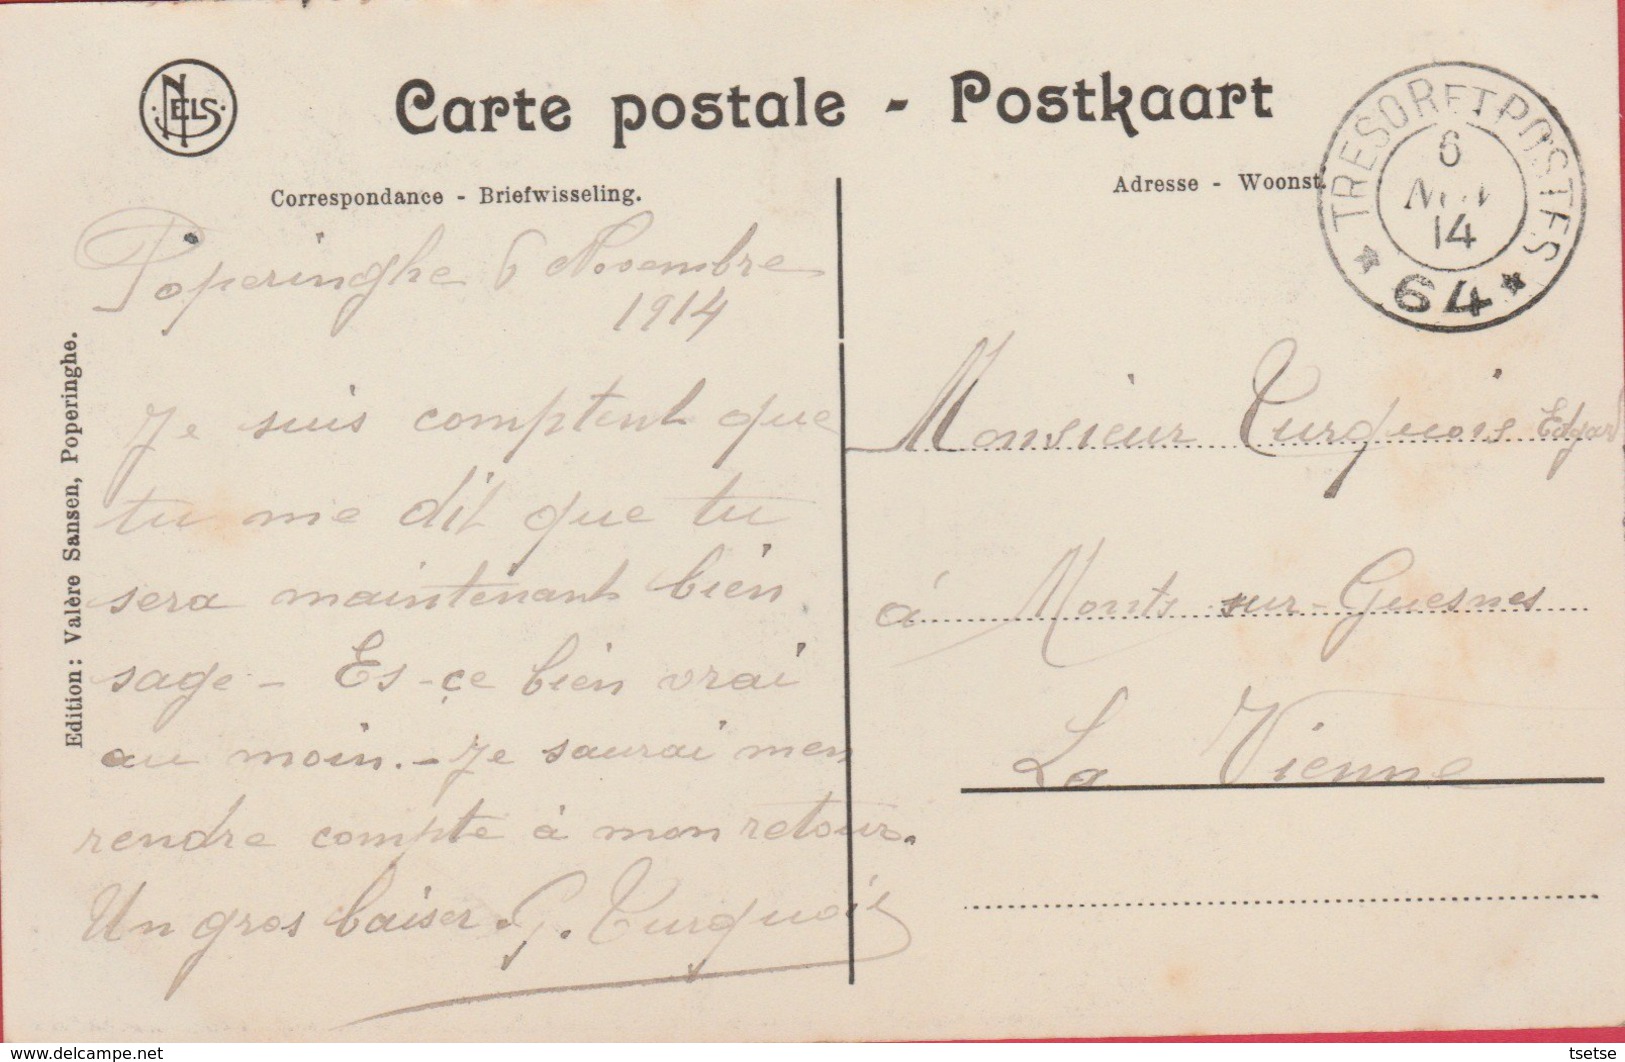 NELS
Carte postale - Postkaart
Correspondance - Briefwisseling.
Adresse - Woonst.
TRESOR ET POSTES
6
NOV
14
* 64 *
Edition: Valère Sansen, Poperinghe.
Poperinghe 6 Novembre
1914
Je suis comptent que
tu me dit que tu
sera maintenant bien
sage - Es-çe bien vrai
au moin. - Je saurai men
rendre compte à mon retour.
Un gros baiser. G. Turquois
Monsieur Turquois Edgar
à Monts-sur-Guesnes
La Vienne
tsetse
www.delcampe.net